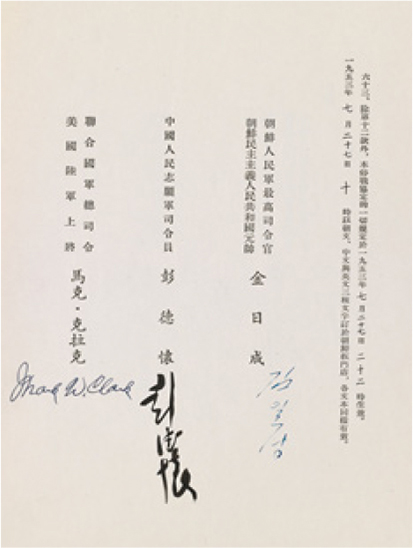 六十三、除第十二款外，本停战协定的一切规定於一九五三年 七 月 二十七日 二十二 时生效。
一九五三年 七 月 二十七日 十 时以朝文、中文与英文三种文字订於朝鲜板门店，各文本同样有效。
朝鮮人民軍最高司令官
朝鮮民主主義人民共和國元帥
金 日 成
김일성
中國人民志願軍司令員
彭 德 懷
彭德懷
聯合國軍總司令
美國陸軍上將
馬克·克拉克
Mark W. Clark